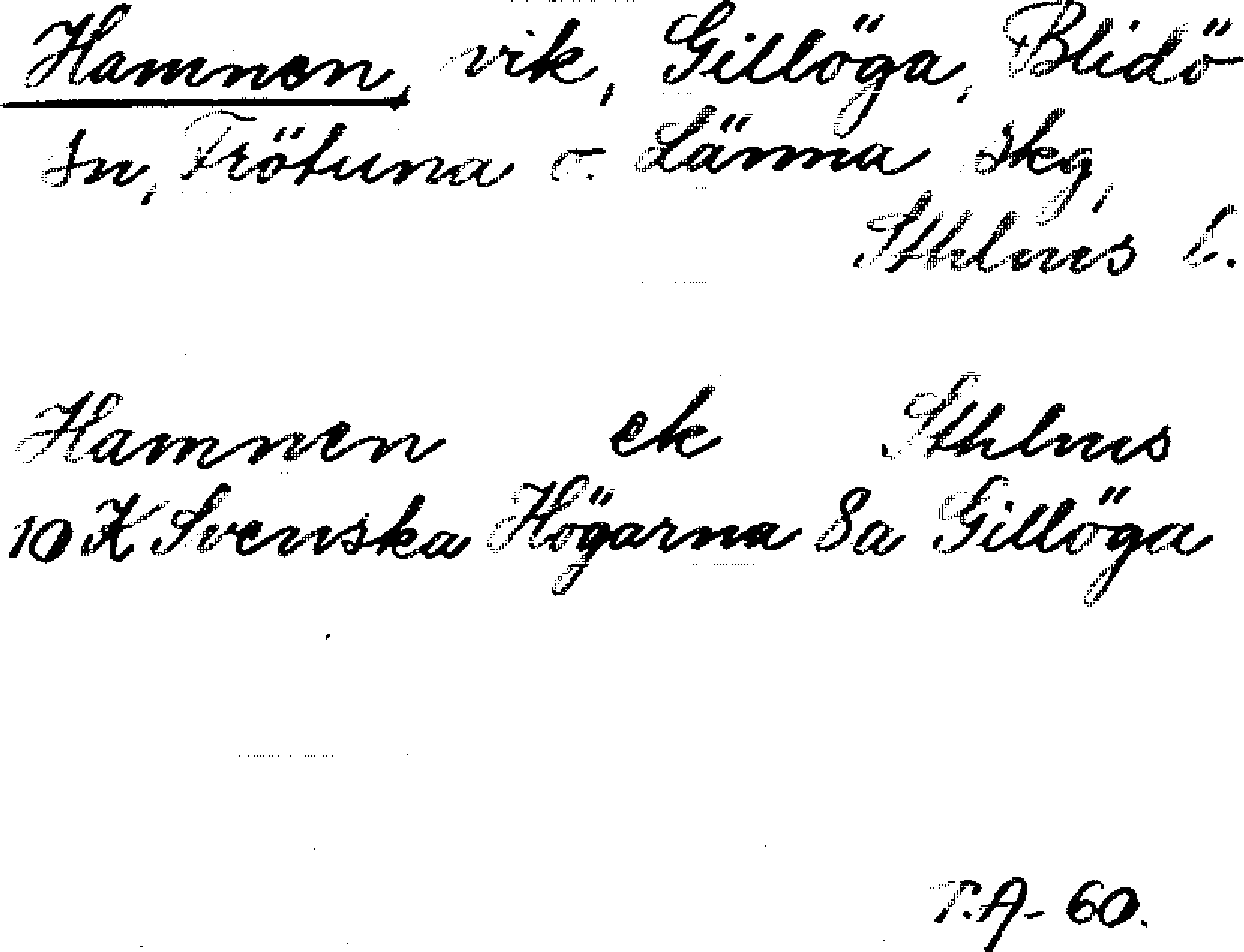 Hamnen, vik, Gillöga, Blidö
sn, Frötuna o. Länna skg,
Sthlms l.
Hamnen ek Sthlms
10 K Svenska Högarna 8a Gillöga
T.A. 60.